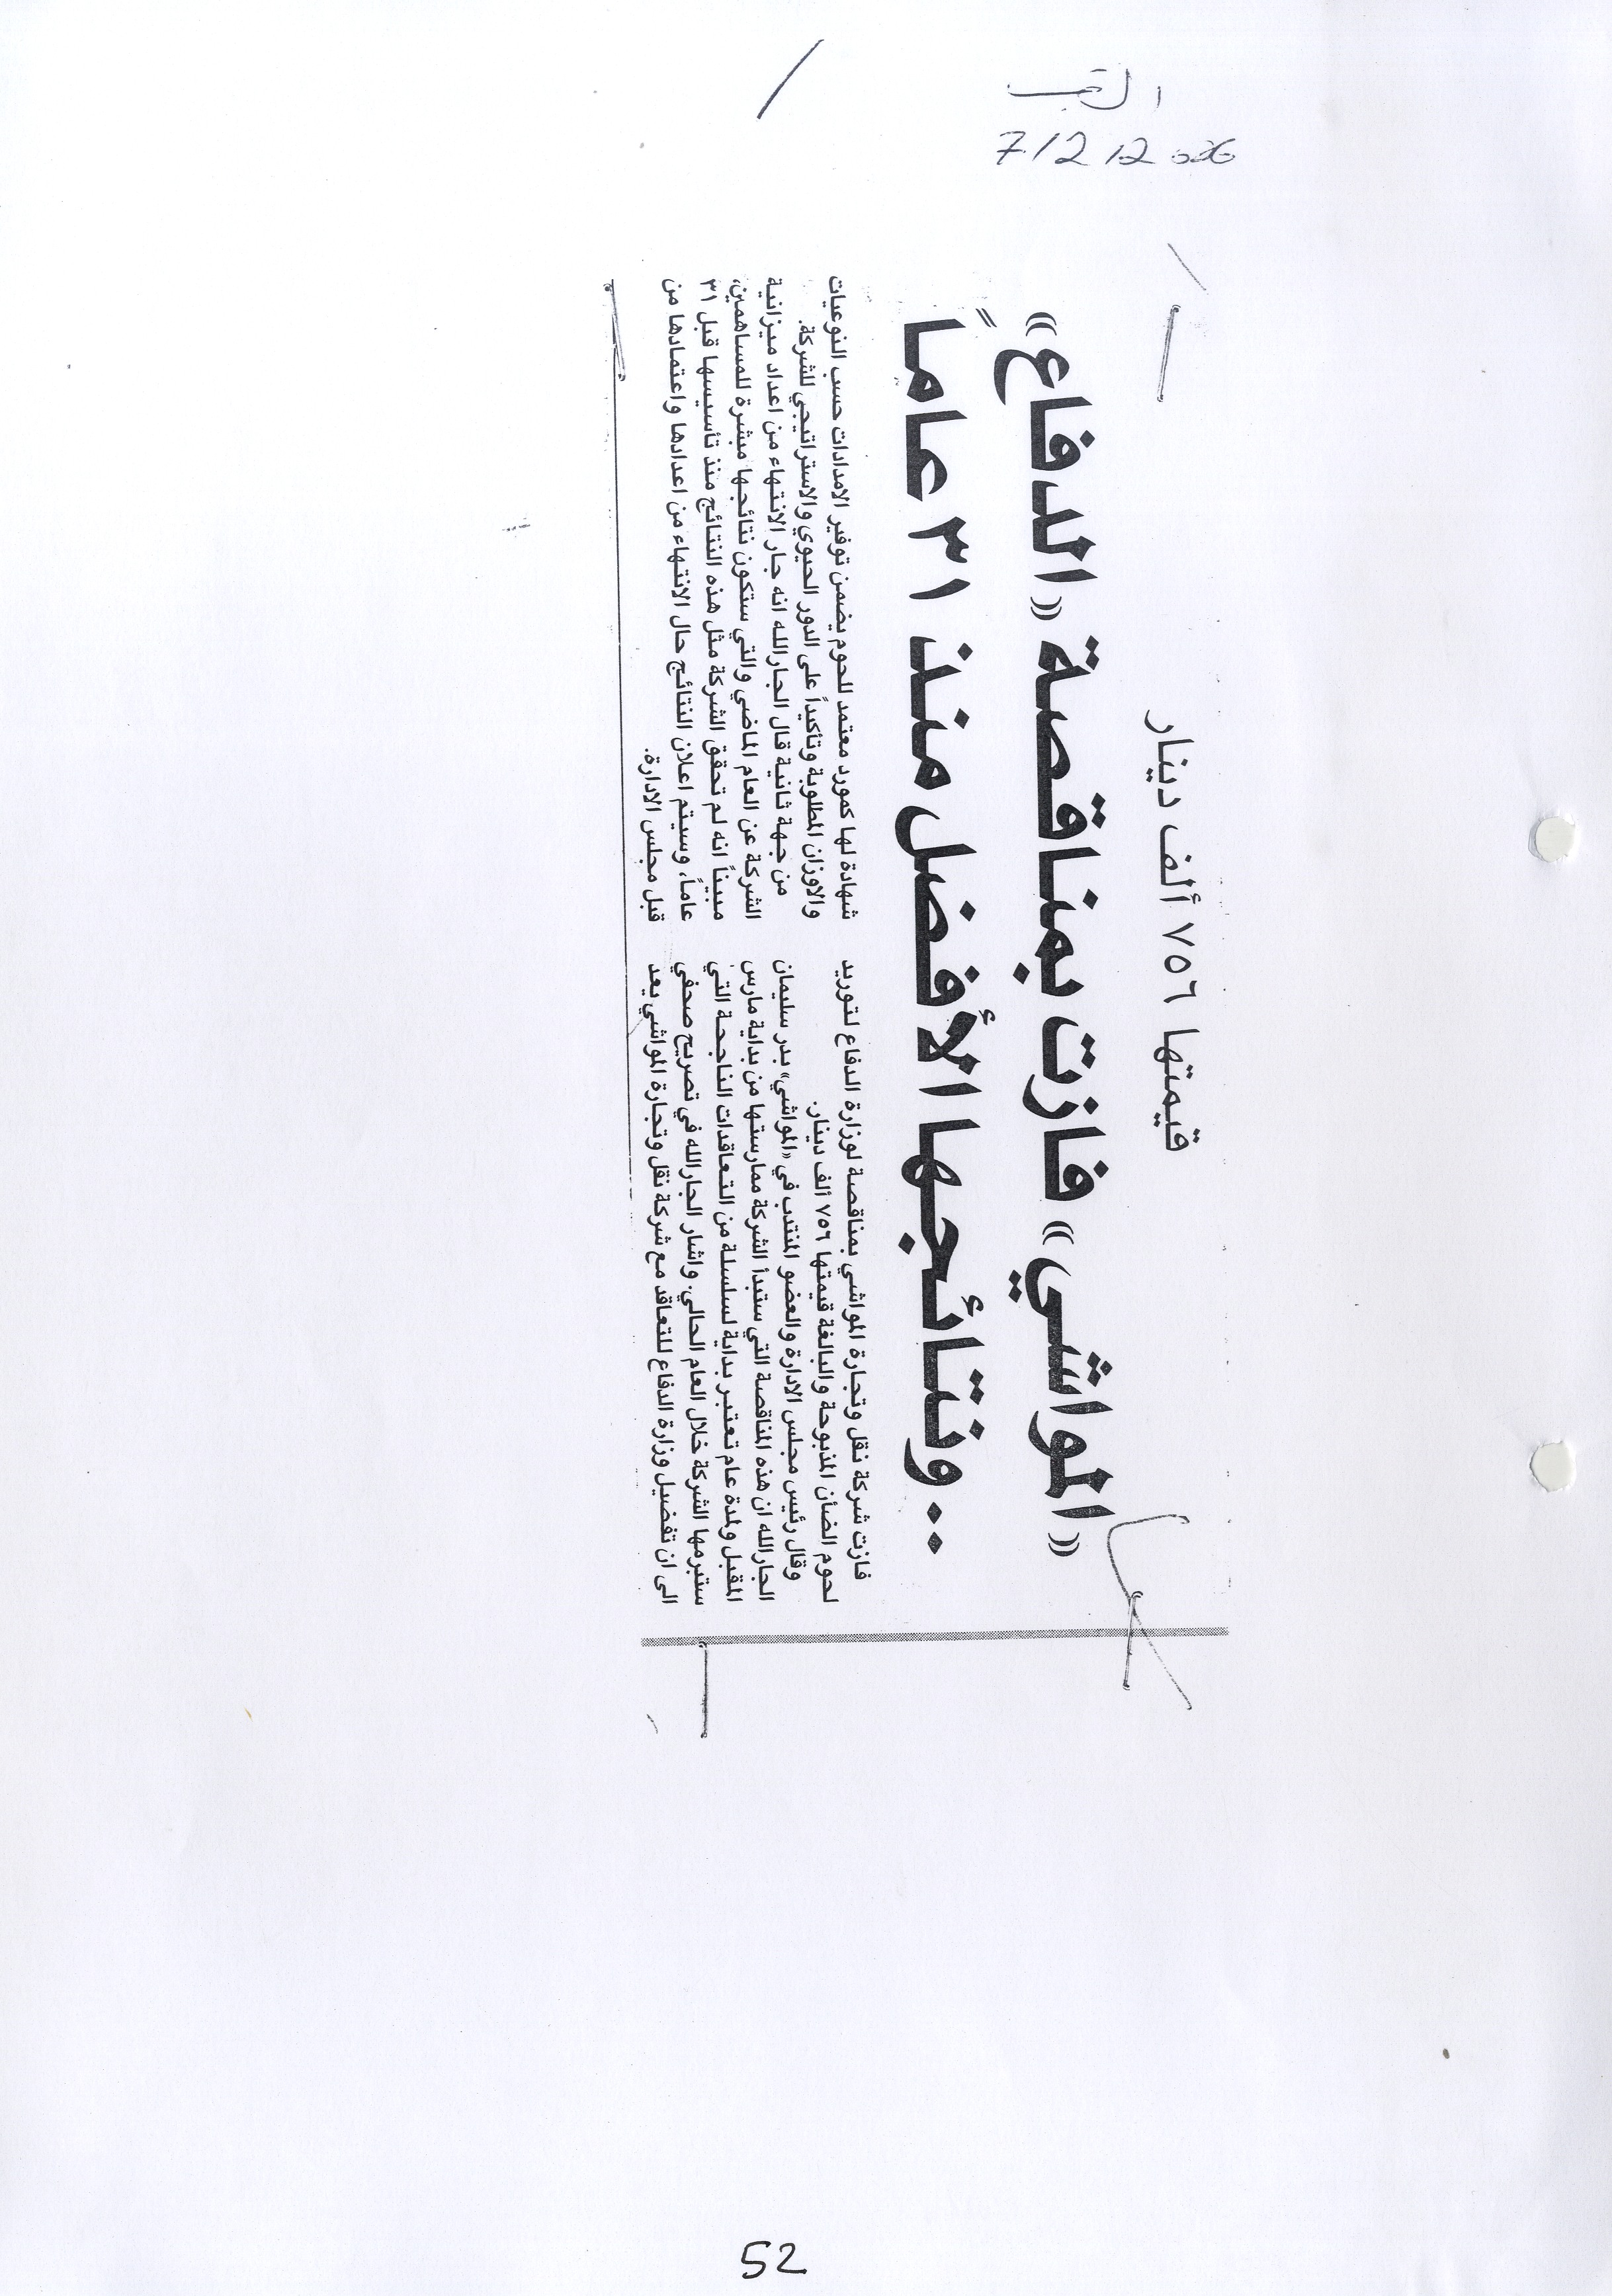 القبس
7/2/2006
قيمتها ٧٥٦ ألف دينار
«المواشي» فازت بمناقصة «الدفاع»
.. ونتائجها الأفضل منذ ٣١ عاماً
فازت شركة نقل وتجارة المواشي بمناقصة لوزارة الدفاع لتوريد
لحوم الضأن المذبوحة والبالغة قيمتها ٧٥٦ ألف دينار.
وقال رئيس مجلس الادارة والعضو المنتدب في «المواشي» بدر سليمان
الجارالله ان هذه المناقصة التي ستبدأ الشركة ممارستها من بداية مارس
المقبل ولمدة عام تعتبر بداية لسلسلة من التعاقدات الناجحة التي
ستبرمها الشركة خلال العام الحالي. واشار الجارالله في تصريح صحفي
الى ان تفضيل وزارة الدفاع للتعاقد مع شركة نقل وتجارة المواشي يعد
شهادة لها كمورد معتمد للحوم يضمن توفير الامدادات حسب النوعيات
والاوزان المطلوبة وتأكيداً على الدور الحيوي والاستراتيجي للشركة.
من جهة ثانية قال الجارالله انه جار الانتهاء من اعداد ميزانية
الشركة عن العام الماضي والتي ستكون نتائجها مبشرة للمساهمين،
مبيناً انه لم تحقق الشركة مثل هذه النتائج منذ تأسيسها قبل ٣١
عاماً، وسيتم اعلان النتائج حال الانتهاء من اعدادها واعتمادها من
قبل مجلس الادارة.
52